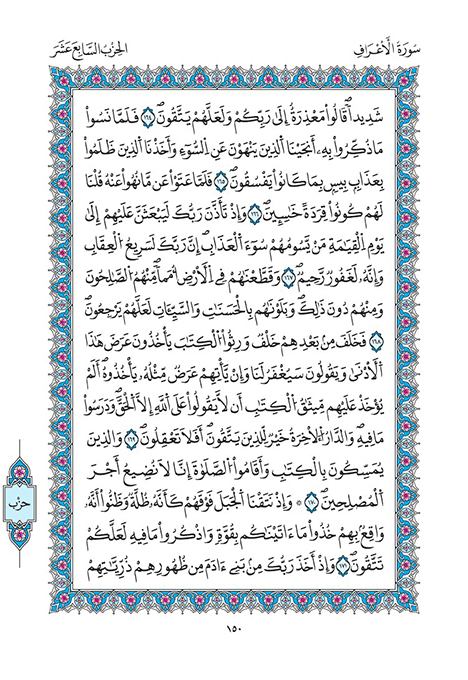 سُورَةُ الْأَعْرَافِ
الحِزْبُ السَّابِعَ عَشَرَ
شَدِيداًۖ قَالُواْ مَعْذِرَةٌ إِلَىٰ رَبِّكُمْ وَلَعَلَّهُمْ يَتَّقُونَۖ ١٦٤ فَلَمَّا نَسُواْ
مَا ذُكِّرُواْ بِهِۦٓ أَنجَيْنَا اَ۬لذِينَ يَنْهَوْنَ عَنِ اِ۬لسُّوٓءِ وَأَخَذْنَا اَ۬لذِينَ ظَلَمُواْ
بِعَذَابِۢ بِيسِۢ بِمَا كَانُواْ يَفْسُقُونَۖ ١٦٥ فَلَمَّا عَتَوْاْ عَن مَّا نُهُواْ عَنْهُ قُلْنَا
لَهُمْ كُونُواْ قِرَدَةً خَٰسِـِٕينَۖ ١٦٦ وَإِذْ تَأَذَّنَ رَبُّكَ لَيَبْعَثَنَّ عَلَيْهِمْ إِلَىٰ
يَوْمِ اِ۬لْقِيَٰمَةِ مَنْ يَّسُومُهُمْ سُوٓءَ اَ۬لْعَذَابِۖ إِنَّ رَبَّكَ لَسَرِيعُ اُ۬لْعِقَابِ
وَإِنَّهُۥ لَغَفُورٌ رَّحِيمٌۖ ١٦٧ وَقَطَّعْنَٰهُمْ فِے اِ۬لْأَرْضِ أُمَماًۖ مِّنْهُمُ اُ۬لصَّٰلِحُونَ
وَمِنْهُمْ دُونَ ذَٰلِكَۖ وَبَلَوْنَٰهُم بِالْحَسَنَٰتِ وَالسَّيِّـَٔاتِ لَعَلَّهُمْ يَرْجِعُونَۖ
١٦٨ فَخَلَفَ مِنۢ بَعْدِهِمْ خَلْفٌ وَرِثُواْ اُ۬لْكِتَٰبَ يَأْخُذُونَ عَرَضَ هَٰذَا
اَ۬لْأَدْنَىٰ وَيَقُولُونَ سَيُغْفَرُ لَنَا وَإِنْ يَّأْتِهِمْ عَرَضٌ مِّثْلُهُۥ يَأْخُذُوهُۖ أَلَمْ
يُؤْخَذْ عَلَيْهِم مِّيثَٰقُ اُ۬لْكِتَٰبِ أَن لَّا يَقُولُواْ عَلَى اَ۬للَّهِ إِلَّا اَ۬لْحَقَّۖ وَدَرَسُواْ
مَا فِيهِۖ وَالدَّارُ اُ۬لْأٓخِرَةُ خَيْرٌ لِّلذِينَ يَتَّقُونَۖ أَفَلَا تَعْقِلُونَۖ ١٦٩ وَالذِينَ
يُمَسِّكُونَ بِالْكِتَٰبِ وَأَقَامُواْ اُ۬لصَّلَوٰةَ إِنَّا لَا نُضِيعُ أَجْرَ
اَ۬لْمُصْلِحِينَۖ ١٧٠ ۞ وَإِذْ نَتَقْنَا اَ۬لْجَبَلَ فَوْقَهُمْ كَأَنَّهُۥ ظُلَّةٌ وَظَنُّواْ أَنَّهُۥ
وَاقِعُۢ بِهِمْ خُذُواْ مَآ ءَاتَيْنَٰكُم بِقُوَّةٍ وَاذْكُرُواْ مَا فِيهِ لَعَلَّكُمْ
تَتَّقُونَۖ ١٧١ وَإِذْ أَخَذَ رَبُّكَ مِنۢ بَنِےٓ ءَادَمَ مِن ظُهُورِهِمْ ذُرِّيَّٰتِهِمْ
حزب
١٥٠